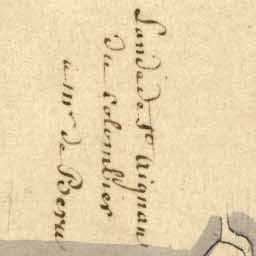 Lande de St Aignan
du Colombier
à Mr de Beru